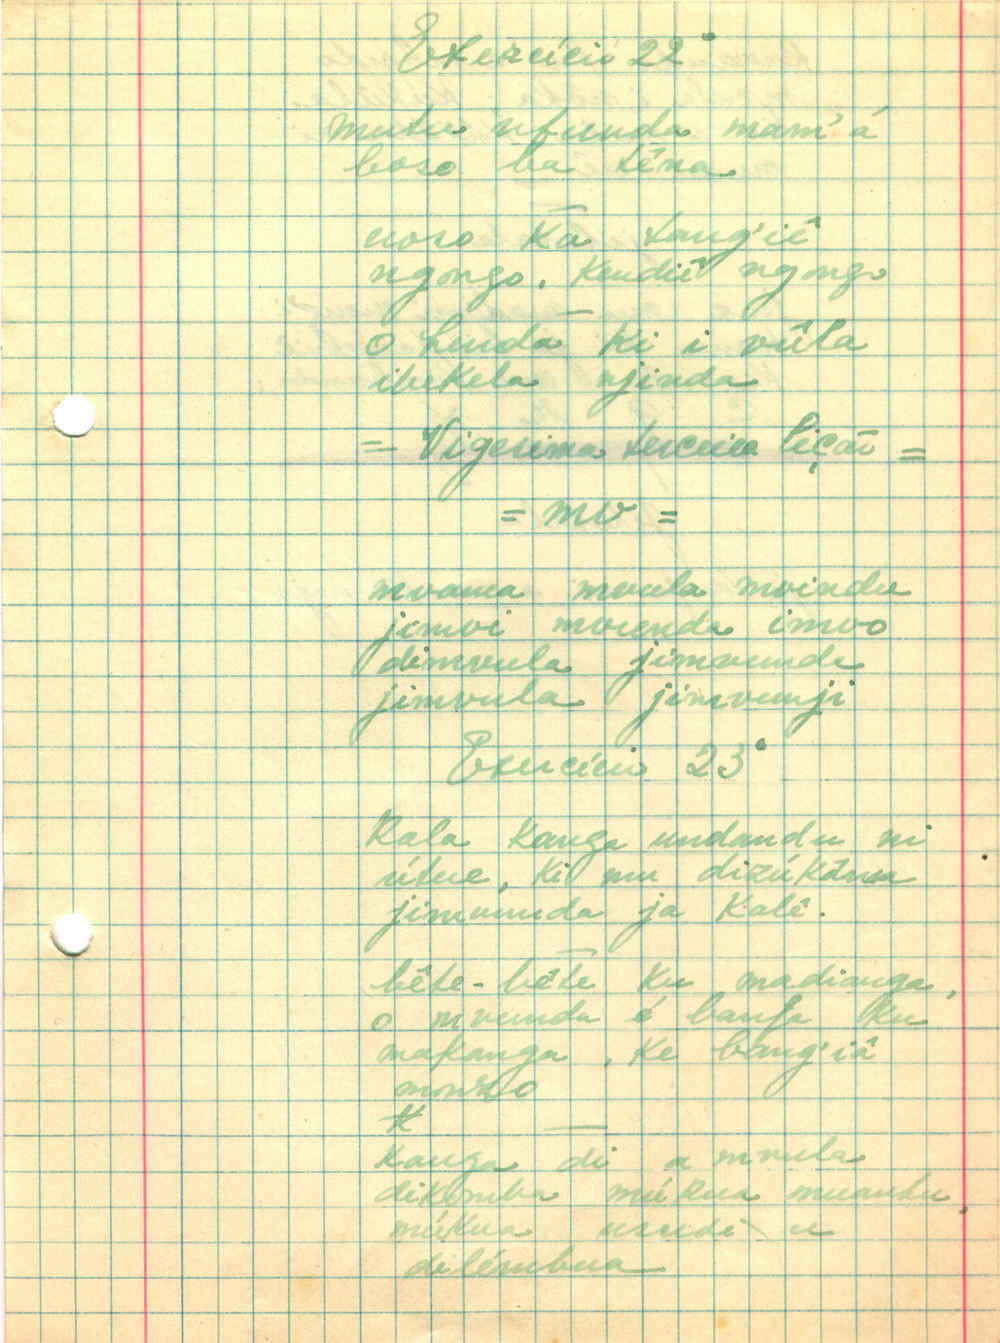 Exercício 22º
mutu ufunda mam'á
boso ba têna
uoso ka tang'iê
ngongo, kudiê ngongo
o henda ki i vûla
ibekela njinda
= Vigesima terceira liçaõ =
= mv =
mvama mvula mvindu
jimvi mvunda imvo
dimvula jimvunda
jimvula jimvunji
Exercício 23º
Kala kanga undandu ni
útue, ki mu dizúkama
jimvunda ja kalê.
bête-bête ku madianga,
o mvunda é banga ku
makanga, ke bang'iâ
monzo
Kanga di a mvula
dikomba múkua muantu,
múkua usudi u
dilémbua